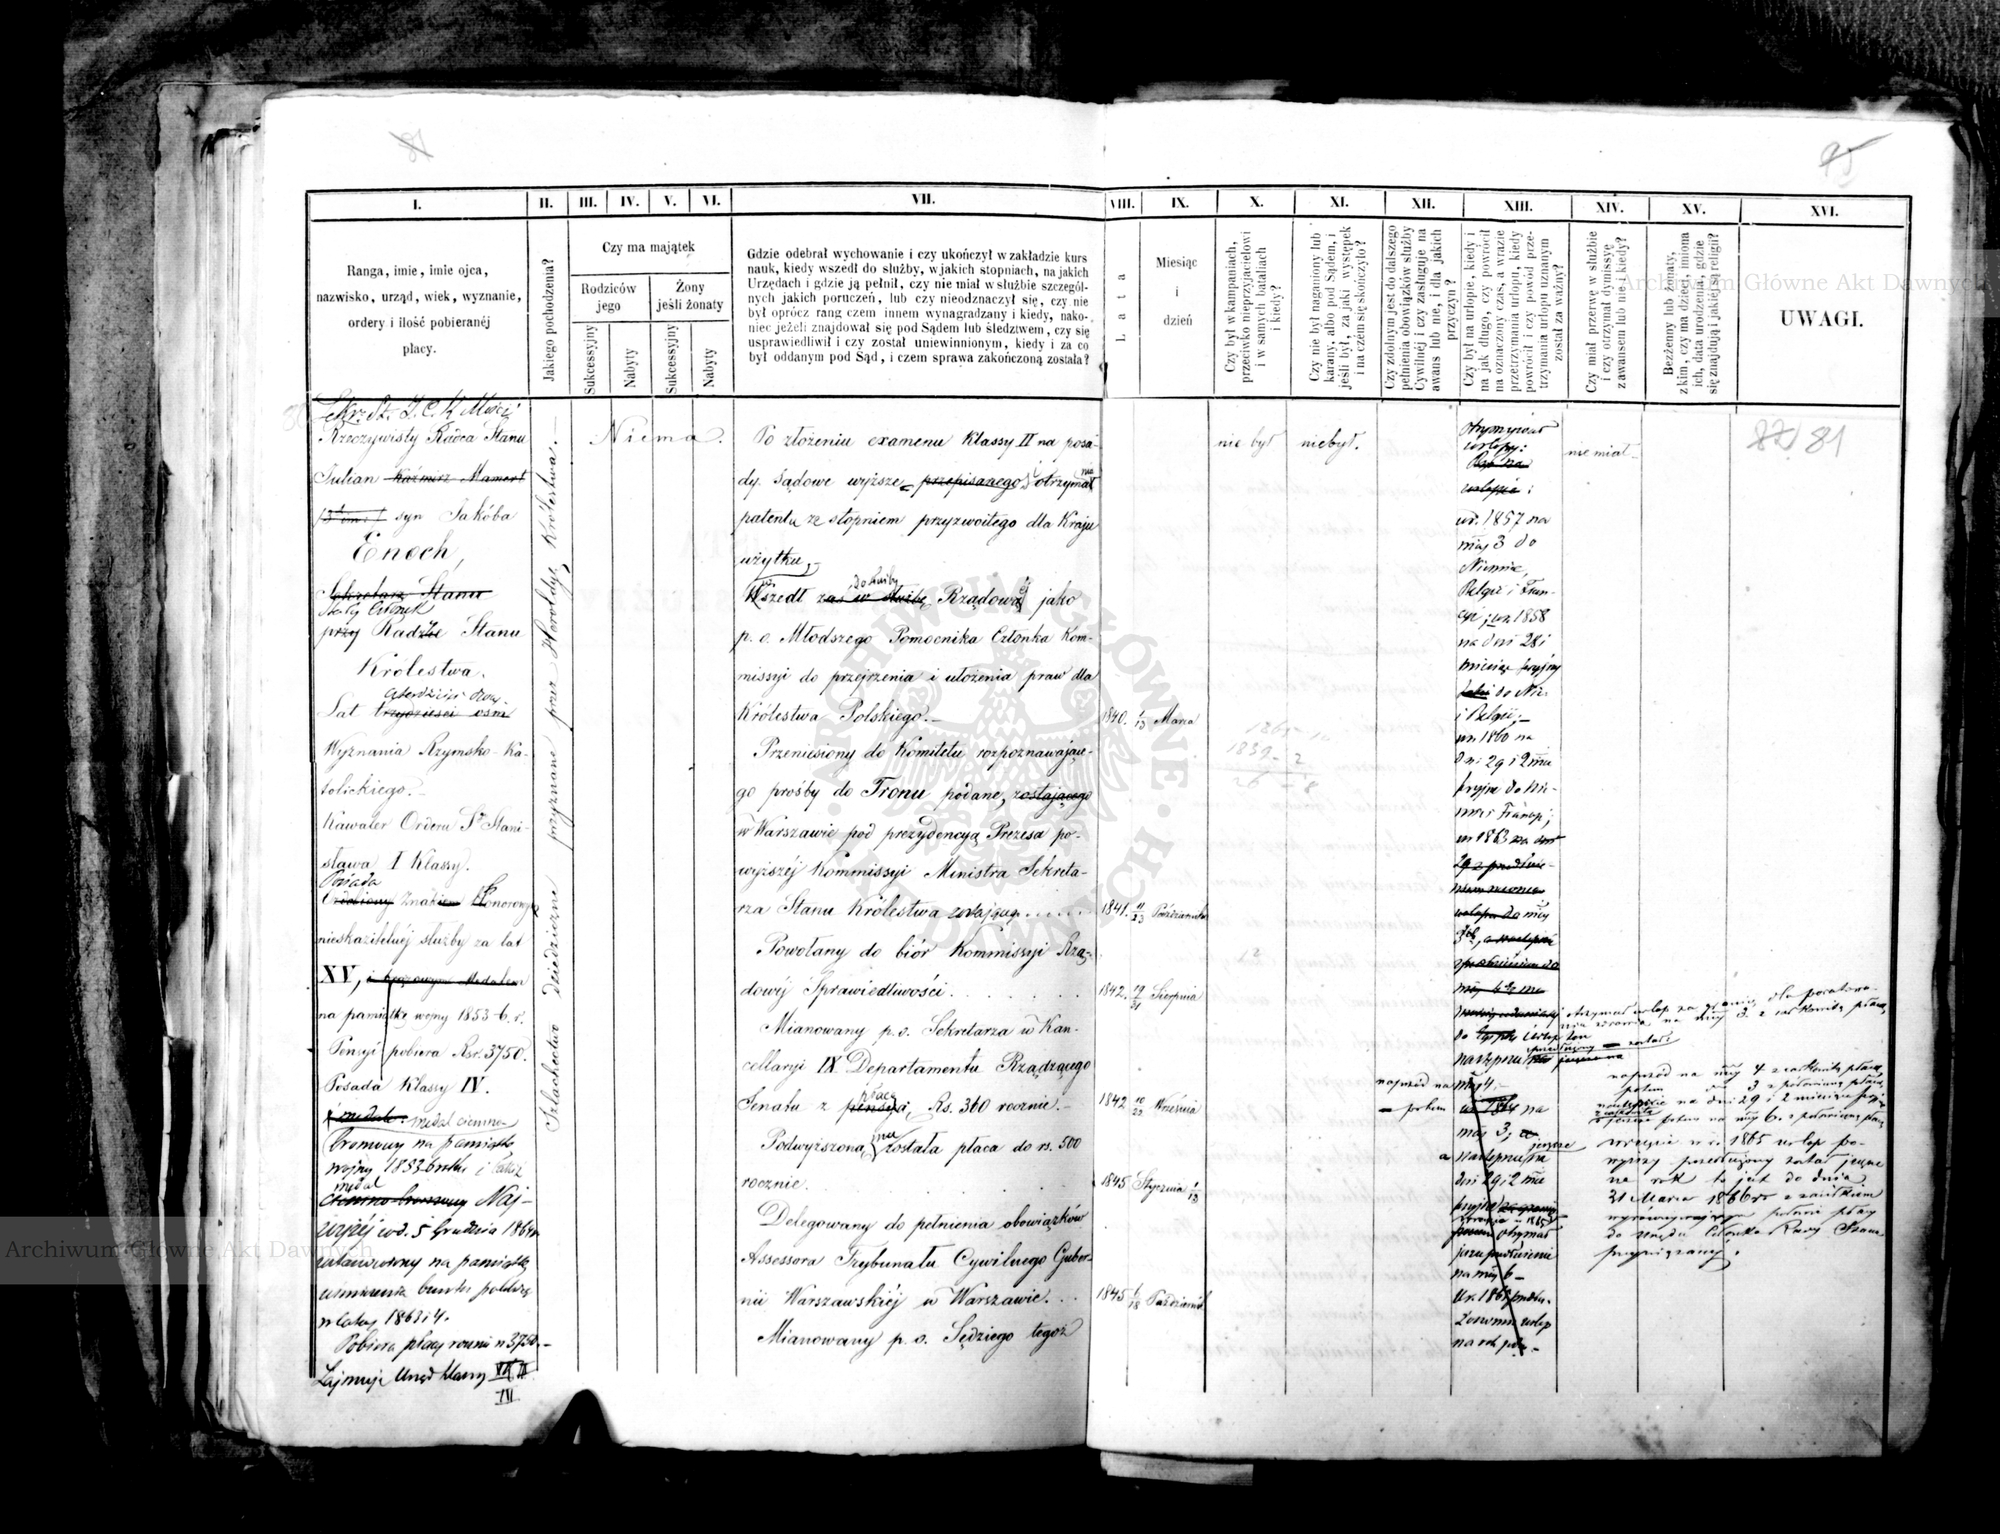 81
95
I.
II.
III.
IV.
V.
VI.
VII.
VIII.
IX.
X.
XI.
XII.
XIII.
XIV.
XV.
XVI.
Ranga, imie, imie ojca,
nazwisko, urząd, wiek, wyznanie,
ordery i ilość pobieranéj
płacy.
Jakiego pochodzenia?
Czy ma majątek
Rodziców
jego
Żony
jeśli żonaty
Sukcessyjny
Nabyty
Sukcessyjny
Nabyty
Gdzie odebrał wychowanie i czy ukończył w zakładzie kurs
nauk, kiedy wszedł do służby, w jakich stopniach, na jakich
Urzędach i gdzie ją pełnił, czy nie miał w służbie szczegól-
nych jakich poruczeń, lub czy nieodznaczył się, czy nie
był oprócz rang czem innem wynagradzany i kiedy, nako-
niec jeżeli znajdował się pod Sądem lub śledztwem, czy się
usprawiedliwił i czy został uniewinnionym, kiedy i za co
był oddanym pod Sąd, i czem sprawa zakończoną została?
Lata
Miesiąc
i
dzień
Czy był w kampaniach,
przeciwko nieprzyjacielowi
i w samych bataliach
i kiedy?
Czy nie był naganiony lub
karany, albo pod Sądem, i
jeśli był, za jaki występek
i na czem się skończyło?
Czy zdolnym jest do dalszego
pełnienia obowiązków służby
Cywilnéj i czy zasługuje na
awans lub nie, i dla jakich
przyczyn?
Czy był na urlopie, kiedy i
na jak długo, czy powrócił
na oznaczony czas, a w razie
przetrzymania urlopu, kiedy
powrócił i czy powód prze-
trzymania urlopu uznanym
został za ważny?
Czy miał przerwę w służbie
i czy otrzymał dymissyę
z awansem lub nie i kiedy?
Bezżenny lub żonaty,
z kim, czy ma dzieci, imiona
ich, data urodzenia, gdzie
się znajdują i jakiéj są religii?
UWAGI.
Sekrzst. J. C. K Mości
Rzeczywisty Radca Stanu
Julian Kaźmierz Mamert
syn Jakóba
Enoch,
Sekretarz Stanu
Stały Członek
przy Radzie Stanu
Królestwa.
czterdzieści
Lat trzydzieści ośm
Wyznania Rzymsko-Ka-
tolickiego.
Kawaler Orderu Sgo Stani-
sława I Klassy.
Posiada
Ozdobiony Znakiem Honorowym
nieskazitelnéj służby za lat
XV, i brązowym Medalem
na pamiątkę wojny 1853-6. r.
Pensyi pobiera Rsr. 3750.
Posada Klassy IV.
medal ciemno
bronzowy na pamiątkę
wojny 1853 i także
medal
ciemno-bronzowy Naj-
wyżéj w d. 5 Grudnia 1864 r.
ustanowiony na pamiątkę
uśmierzenia buntu polskiego
w latach 1863 i 4.
Pobiera płacy rocznie rs 3750.
Zajmuje Urząd klassy VI
IV
Szlachectwo dziedziczne przyznane przez Heroldyą Królestwa.
Niema.
Po złożeniu examenu Klassy II na posa-
dy Sądowe wyższe przepisanego otrzymał
patent ze stopniem przyzwoitego dla Kraju
użytku,
do służby
Wszedł zaś w służbę Rządową jako
p. o. Młodszego Pomocnika Członka Kom-
missyi do przejrzenia i ułożenia praw dla
Królestwa Polskiego.
1840. 1/13 Marca
Przeniesiony do Komitetu rozpoznawające-
go prośby do Tronu podane, zostającego
w Warszawie pod prezydencyą Prezesa po-
wyższéj Kommissyi Ministra Sekreta-
rza Stanu Królestwa zostającą
1841. 11/23 Października
Powołany do biór Kommissyi Rzą-
dowéj Sprawiedliwości.
1842. 19/31 Sierpnia
Mianowany p. o. Sekretarza w Kan-
cellaryi IX Departamentu Rządzącego
płacą
Senatu z pensyą Rs. 360 rocznie.
1842 10/22 Września
Podwyższona mu została płaca do rs. 500
rocznie.
1845 Stycznia 1/13
Delegowany do pełnienia obowiązków
Assessora Trybunału Cywilnego Guber-
nii Warszawskiéj w Warszawie.
1845 6/18 Październik
Mianowany p. o. Sędziego tegoż
nie był
niebył.
otrzymywał
urlopy:
Był na
urlopie:
w r. 1857 na
mcy 3 do
Niemiec,
Belgii i Fran-
cyi; w r. 1858
na dni 28 i
miesiąc feryjny
do Nie.
i Belgii;
w r. 1860 na
dni 29 i 2 mce
feryjne do Nie-
miec i Francyi;
w r 1863 na dni
29
urlopu do mcy
nie miał
87/ 81
otrzymał urlop za granicę dla poratowa-
nia zdrowia na mcy 3. z całkowitą płacą,
naprzód na mcy 4 z całkowitą płacą
potem na 3 z połowiczną płacą
na dni 29 i 2 miesiące feryj.
potem na mcy 6. z połowiczną płacą
wreszcie w r. 1865 urlop po-
wyższy przedłużony został jeszcze
na rok to jest do dnia
31 Marca 1866 r
do urzędu Członka Rady Stanu
przywiązanéj.
naprzód na mcy 4.
potem
w r. 1864 na
mcy 3,
jeszcze
a następnie
dni 29 i 2 mce
otrzymał
na mcy 6
W r. 1865
urlop
na rok
1839
Archiwum Główne Akt Dawnych
Archiwum Główne Akt Dawnych
ARCHIWUM GŁÓWNE AKT DAWNYCH